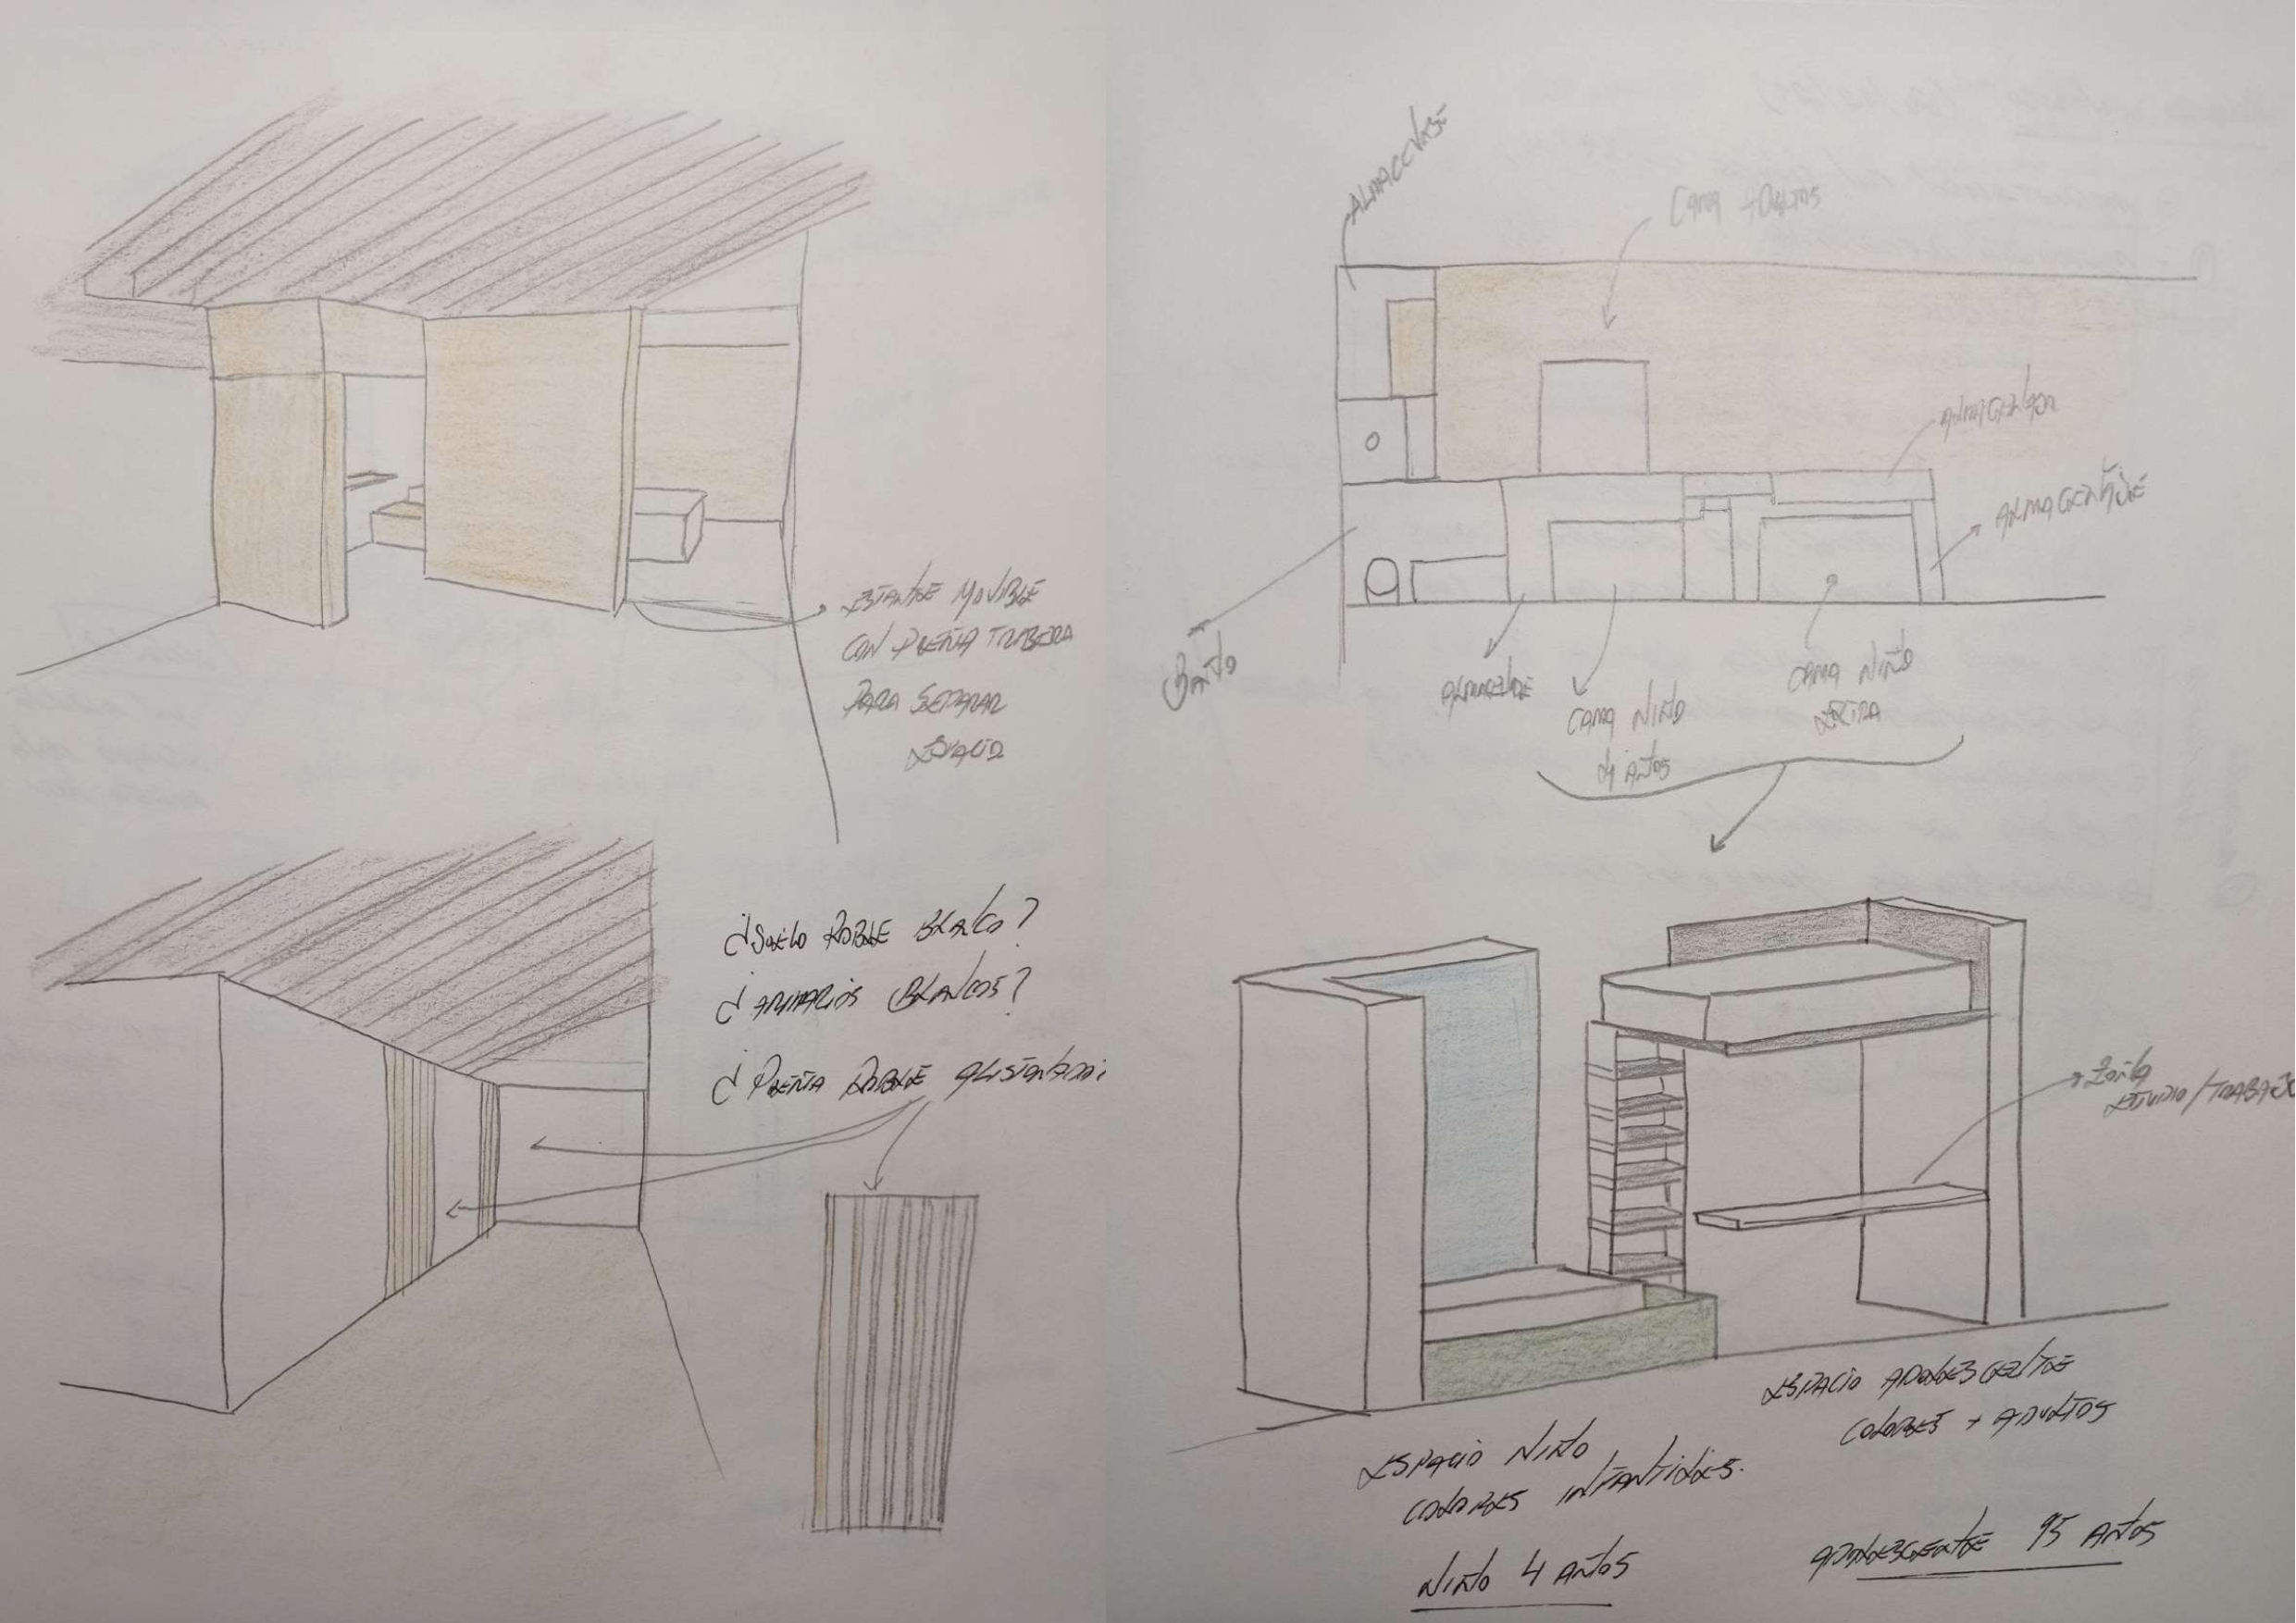 ESTANTE MOVIBLE
CON PUERTA TRASERA
PARA SEPARAR
ESPACIO
¿SUELO ROBLE BLANCO?
¿ARMARIOS BLANCOS?
¿PUERTA ROBLE ALISTONADO?
CAMA + ADULTOS
ALMACENAJE
BAÑO
ALMACENAJE
CAMA NIÑO
4 AÑOS
CAMA NIÑO
EXTRA
ZONA
ESTUDIO/TRABAJO
ESPACIO NIÑO
COLORES INFANTILES.
NIÑO 4 AÑOS
ESPACIO ADOLESCENTE
COLORES + ADULTOS
ADOLESCENTE 15 AÑOS